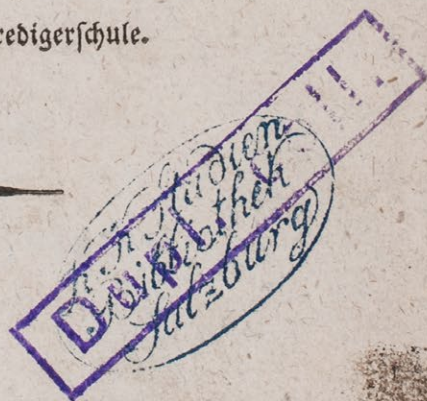 redigerſchule.
K. K. Studien
Bibliothek
Salzburg
Dupl